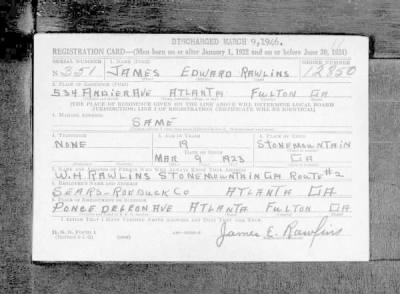 DISCHARGED MARCH 9, 1946.
REGISTRATION CARD—(Men born on or after January 1, 1922 and on or before June 30, 1924)
SERIAL NUMBER 1. NAME (Print) ORDER NUMBER
N 351 JAMES EDWARD RAWLINS 12850
2. PLACE OF RESIDENCE (Print)
534 ATLANTA FULTON GA
[THE PLACE OF RESIDENCE GIVEN ON THE LINE ABOVE WILL DETERMINE LOCAL BOARD
JURISDICTION; LINE 2 OF REGISTRATION CERTIFICATE WILL BE IDENTICAL]
3. MAILING ADDRESS
SAME
4. TELEPHONE 5. AGE IN YEARS 6. PLACE OF BIRTH
NONE 19 STONEMOUNTAIN
DATE OF BIRTH
MAR 9 1923 GA
7. NAME AND ADDRESS OF PERSON WHO WILL ALWAYS KNOW YOUR ADDRESS
W.H. RAWLINS STONEMOUNTAIN GA ROUTE #2
8. EMPLOYER'S NAME AND ADDRESS
SEARS-ROEBUCK CO ATLANTA GA
9. PLACE OF EMPLOYMENT OR BUSINESS
PONCE DELEON AVE ATLANTA FULTON GA
I AFFIRM THAT I HAVE VERIFIED ABOVE ANSWERS AND THAT THEY ARE TRUE.
D. S. S. FORM 1
James E. Rawlins